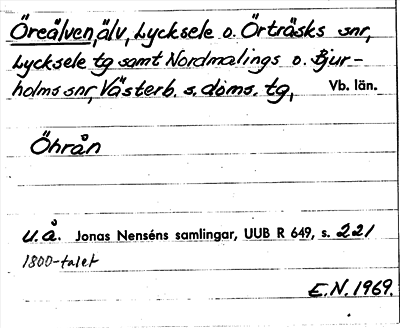 Öreälven, älv, Lycksele o. Örträsks snr,
Lycksele tg samt Nordmalings o. Bjur-
holms snr, Västerb. s. doms. tg, Vb. län.
Öhrån
U.å. Jonas Nenséns samlingar, UUB R 649, s. 221
1800-talet
E.N. 1969.